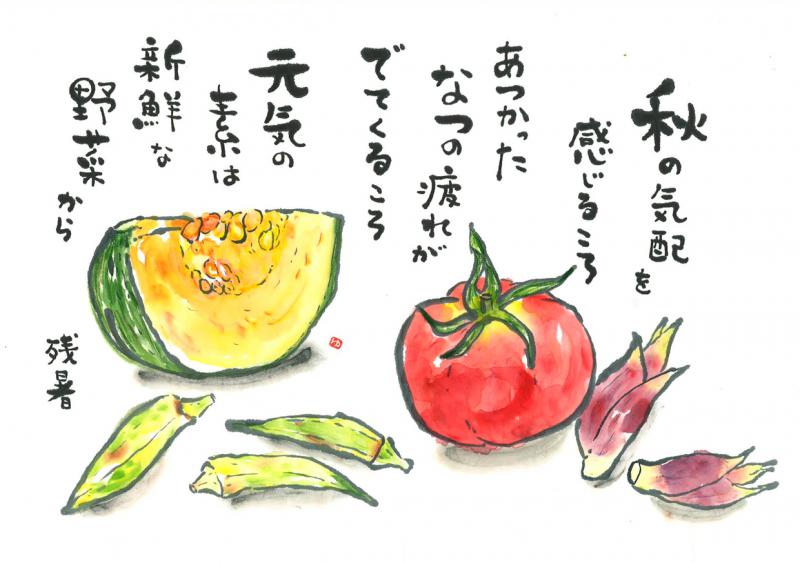 秋の気配を
感じるころ
あつかった
なつの疲れが
でてくるころ
元気の
素は
新鮮な
野菜から
残暑
ゆ